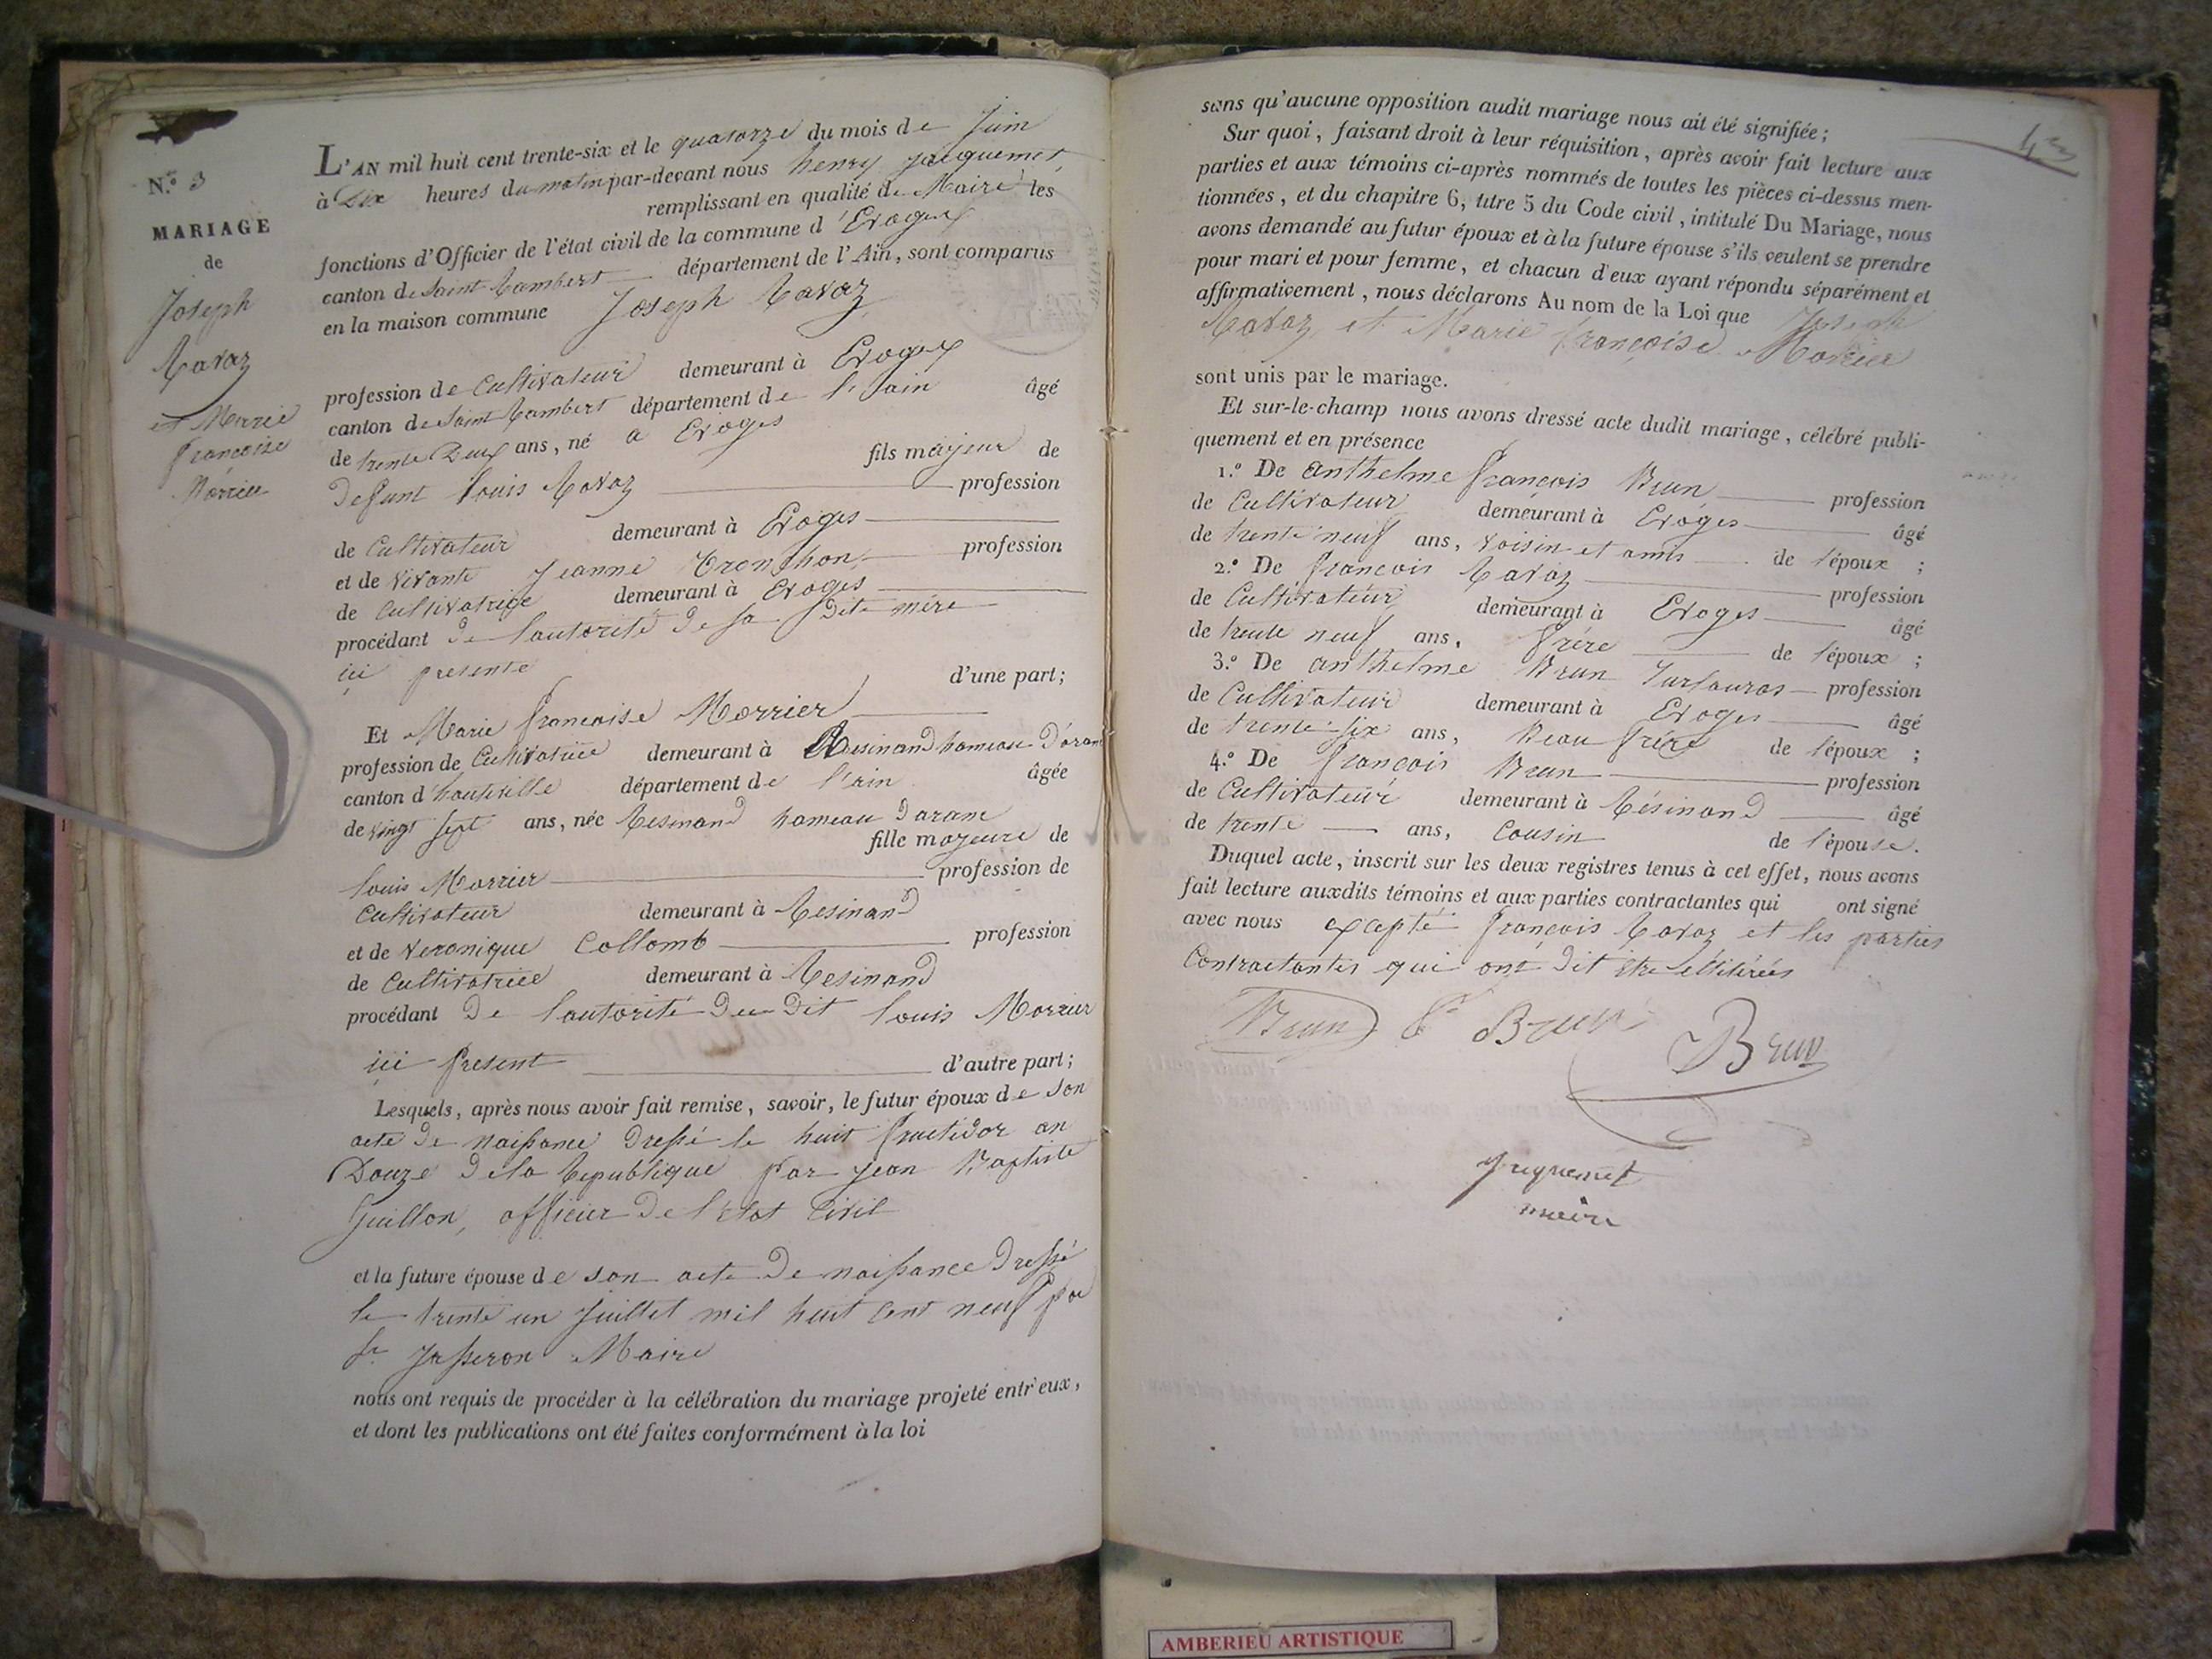 N.º 3
MARIAGE
de
Joseph
Ravaz
et Marie
françoise
Morrier
L'AN mil huit cent trente-six et le quatorze du mois de Juin
à Dix heures du matin par-devant nous henry Jacquemet
remplissant en qualité de Maire les
fonctions d'Officier de l'état civil de la commune d'Evoges
canton de Saint Rambert département de l'Ain, sont comparus
en la maison commune Joseph Ravaz
profession de Cultivateur demeurant à Evoges
canton de Saint Rambert département de l'ain âgé
de trente Deux ans, né a Evoges
fils majeur de
Defunt louis Ravaz profession
de Cultivateur demeurant à Evoges
et de vivante Jeanne Tronchon profession
de Cultivatrice demeurant à Evoges
procédant de lautorité de sa dite mère
ici presente d'une part;
Et Marie françoise Morrier
profession de Cultivatrice demeurant à Resinand hameau D'aran
canton d'hauteville département de l'ain âgée
de vingt sept ans, née Resinand hameau Daranc
fille majeure de
louis Morrier profession de
Cultivateur demeurant à Resinand
et de veronique Collomb profession
de Cultivatrice demeurant à Resinand
procédant De lautorité Du Dit louis Morrier
ici present d'autre part;
Lesquels, après nous avoir fait remise, savoir, le futur époux de son
acte De naissance Dressé le huit fructidor an
Douze Dela Republique par Jean Baptiste
Guillon, officier De l'Etat Civil
et la future épouse de son acte De naissance Dressé
le trente un Juillet mil huit Cent neuf par
Sr Jasseron Maire
nous ont requis de procéder à la célébration du mariage projeté entr'eux,
et dont les publications ont été faites conformément à la loi
43
sans qu'aucune opposition audit mariage nous ait été signifiée;
Sur quoi, faisant droit à leur réquisition, après avoir fait lecture aux
parties et aux témoins ci-après nommés de toutes les pièces ci-dessus men-
tionnées, et du chapitre 6, titre 5 du Code civil, intitulé Du Mariage, nous
avons demandé au futur époux et à la future épouse s'ils veulent se prendre
pour mari et pour femme, et chacun d'eux ayant répondu séparément et
affirmativement, nous déclarons Au nom de la Loi que Joseph
Ravaz et Marie françoise Morrier
sont unis par le mariage.
Et sur-le-champ nous avons dressé acte dudit mariage, célébré publi-
quement et en présence
1.º De anthelme françois Brun profession
de Cultivateur demeurant à Evoges âgé
de trente neuf ans, voisin et amis de l'époux ;
2.º De françois Ravaz profession
de Cultivateur demeurant à Evoges âgé
de trente neuf ans, frère de l'époux ;
3.º De anthelme Brun profession
de Cultivateur demeurant à Evoges âgé
de trente-six ans, Beau frère de l'époux ;
4.º De françois Brun profession
de Cultivateur demeurant à Résinand âgé
de trente ans, Cousin de l'épouse.
Duquel acte, inscrit sur les deux registres tenus à cet effet, nous avons
fait lecture auxdits témoins et aux parties contractantes qui ont signé
avec nous excepté françois Ravaz et les parties
Contractantes qui ont Dit être illitérées
Brun Brun Brun
Jacquemet
maire
AMBERIEU ARTISTIQUE